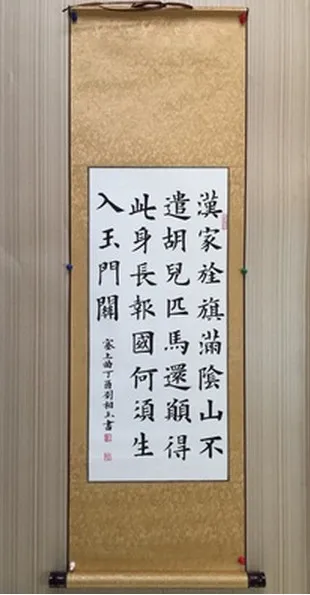 漢家旌旗滿陰山不
遣胡兒匹馬還願得
此身長報國何須生
入玉門關
塞上曲丁酉劉相上書